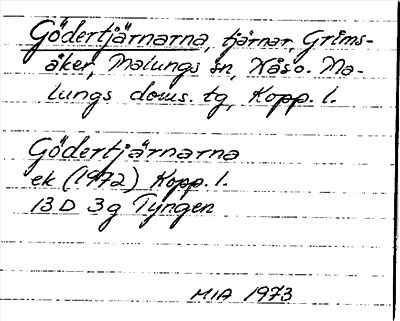 Gödertjärnarna, tjärnar, Grims-
åker, Malungs sn, Nåso. Ma-
lungs doms. tg, Kopp. l.
Gödertjärnarna
ek (1972) Kopp. l.
13 D 3g Tyngen
MIA 1973